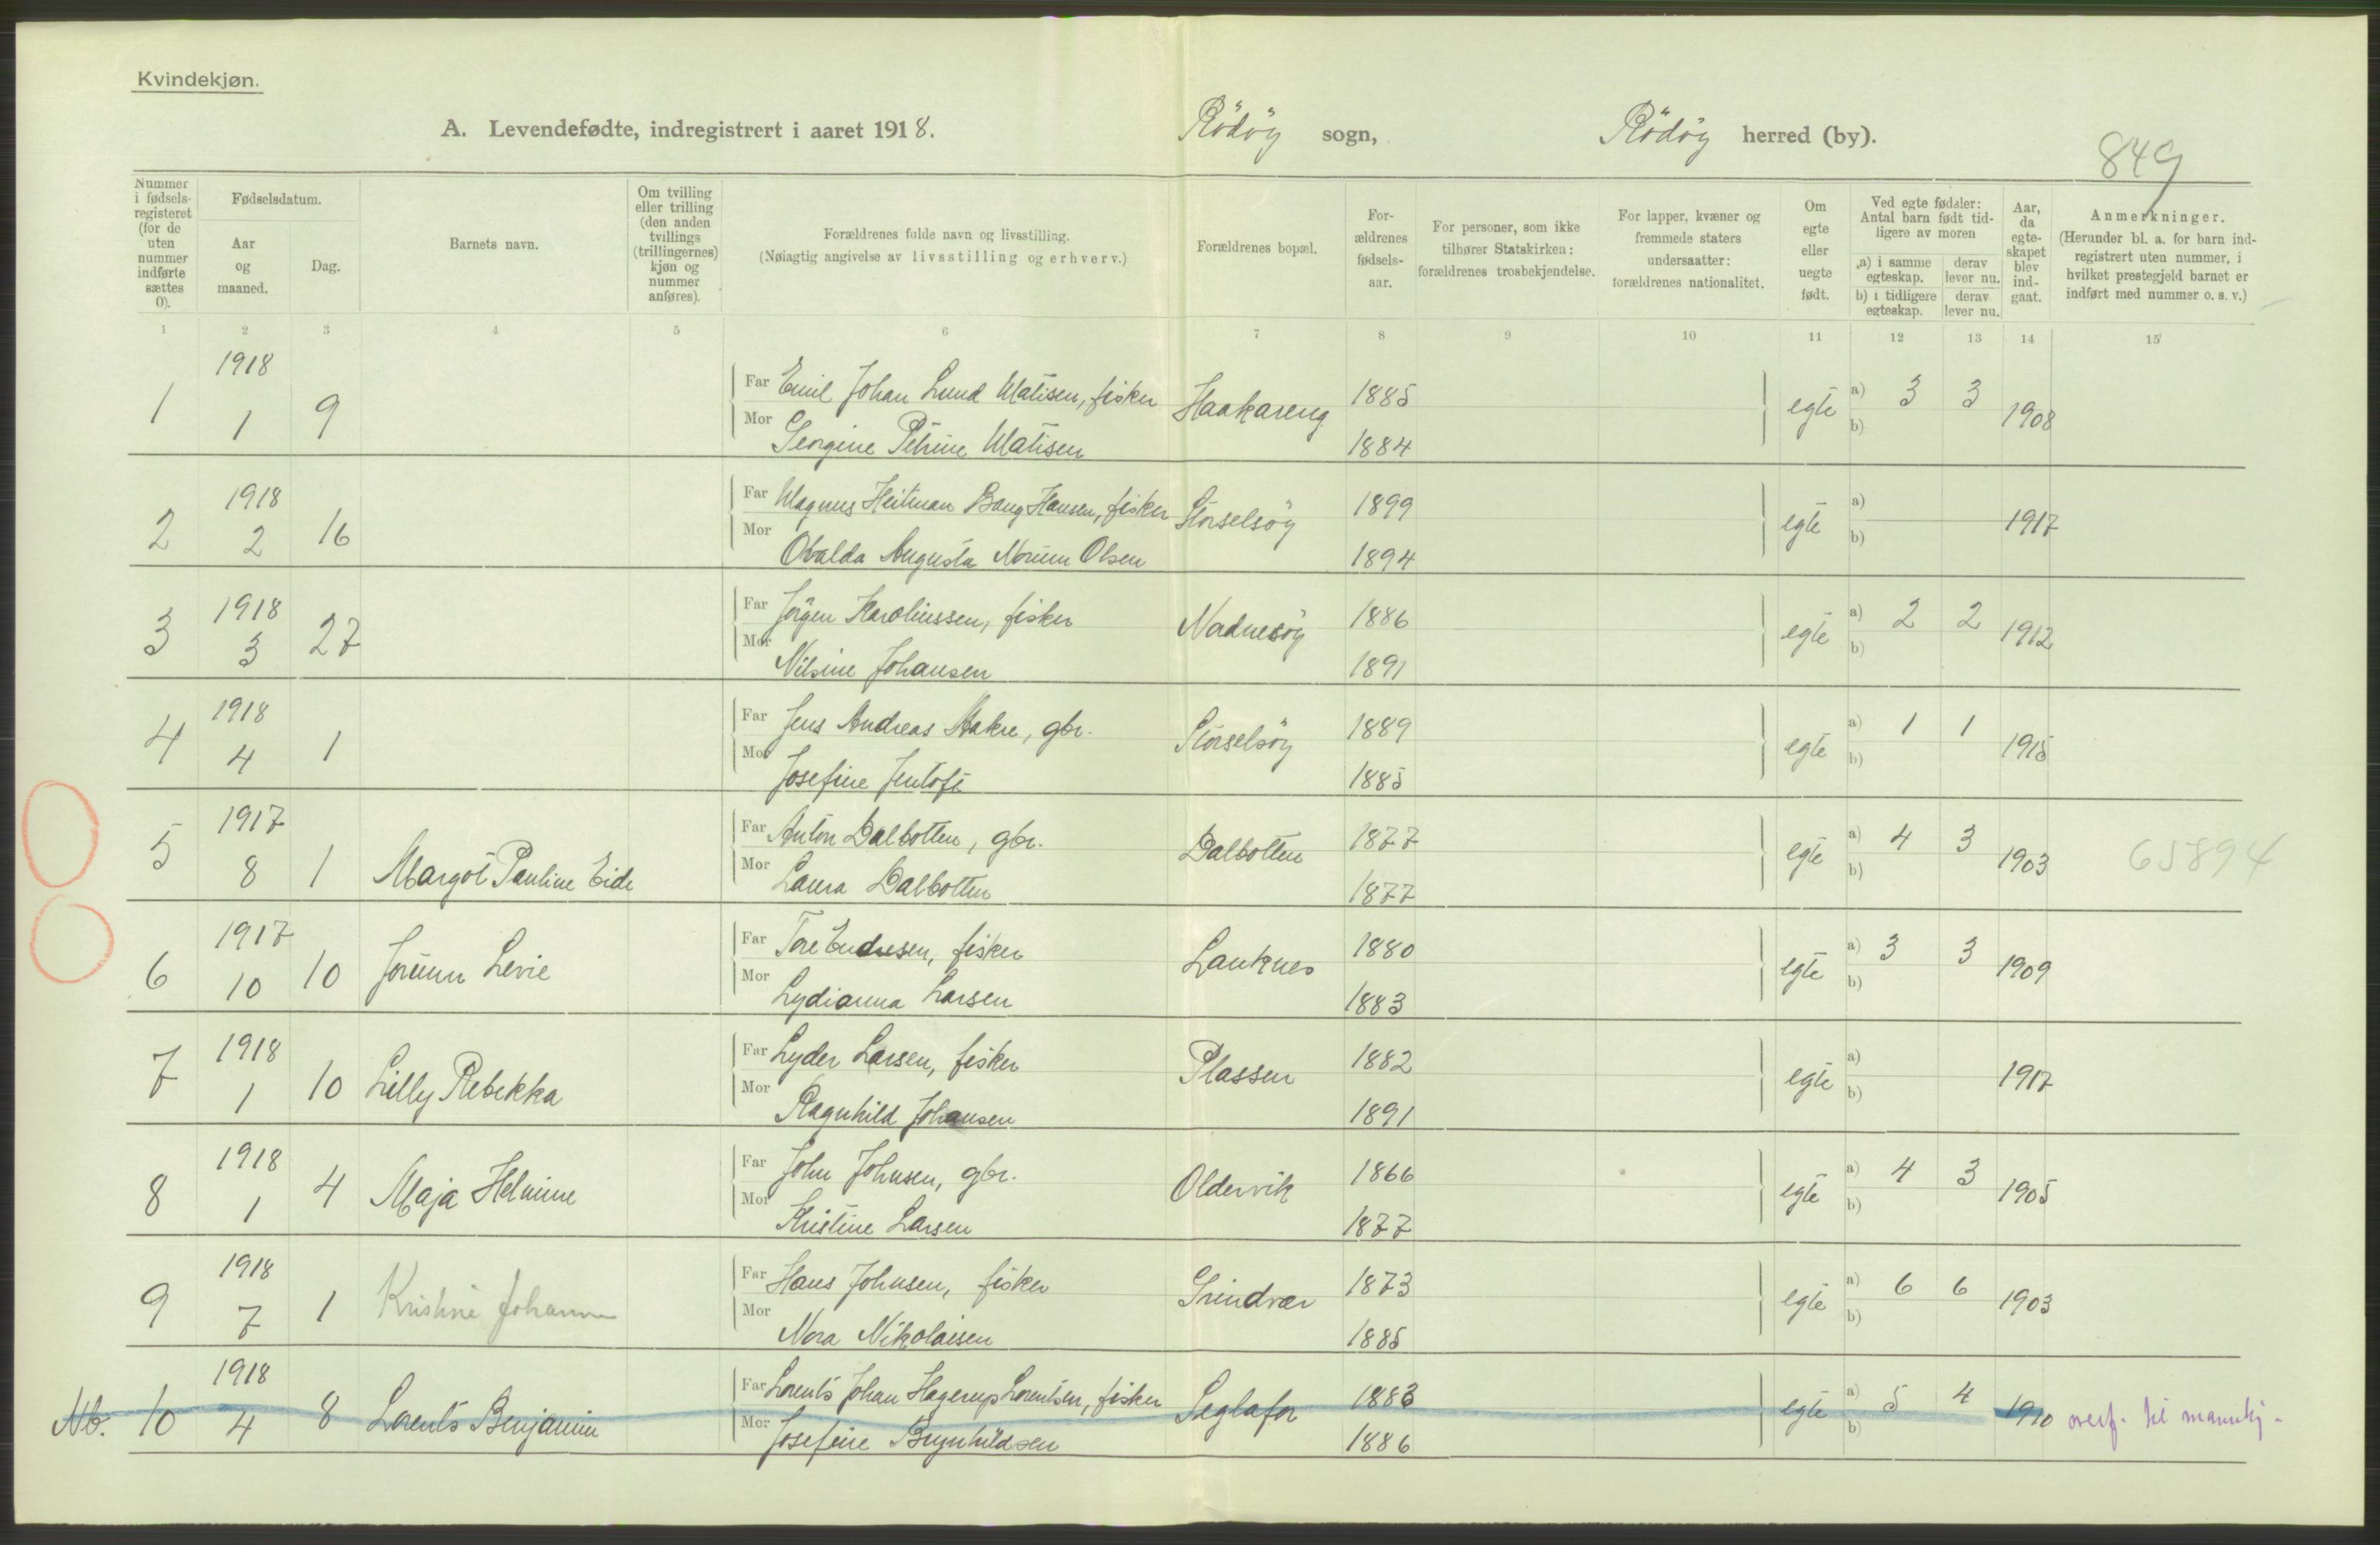 Kvindekjøn.
A. Levendefødte, indregistrert i aaret 1918. Rödöy sogn, Rödöy herred (by).
849
Nummer i fødsels-registeret (for de uten nummer indførte sættes 0).
Fødselsdatum.
Aar og maaned.
Dag.
Barnets navn.
Om tvilling eller trilling (den anden tvillings (trillingernes) kjøn og nummer anføres).
Forældrenes fulde navn og livsstilling.
(Nøiagtig angivelse av livsstilling og erhverv.)
Forældrenes bopæl.
For-ældrenes fødsels-aar.
For personer, som ikke tilhører Statskirken: forældrenes trosbekjendelse.
For lapper, kvæner og fremmede staters undersaatter: forældrenes nationalitet.
Om egte eller uegte født.
Ved egte fødsler: Antal barn født tid-ligere av moren
a) i samme egteskap.
derav lever nu.
b) i tidligere egteskap.
derav lever nu.
Aar, da egte-skapet blev ind-gaat.
Anmerkninger.
(Herunder bl. a. for barn ind-registrert uten nummer, i hvilket prestegjeld barnet er indført med nummer o. s. v.)
1 2 3 4 5 6 7 8 9 10 11 12 13 14 15
1 1918 1 9 Far Emil Johan Lund Matisen, fisker Haakareng 1885 egte a) 3 3 1908
Mor Georgine Petrine Matisen 1884 b)
2 1918 2 16 Far Magnus Heitman Bang Hansen, fisker Storselsöy 1899 egte a) 1917
Mor Ovalda Augusta Norum Olsen 1894 b)
3 1918 3 27 Far Jörgen Karoliussen, fisker Nordnesöy 1886 egte a) 2 2 1912
Mor Nilsine Johansen 1891 b)
4 1918 4 1 Far Jens Andreas Aakre, gbr. Storselsöy 1889 egte a) 1 1 1915
Mor Josefine Jentoft 1885 b)
5 1917 8 1 Margot Pauline Eide Far Anton Dalbotten, gbr. Dalbotten 1877 egte a) 4 3 1903 65894
Mor Laura Dalbotten 1877 b)
6 1917 10 10 Jorunn Levie Far Tore Endresen, fisker Lauknes 1880 egte a) 3 3 1909
Mor Lydianna Larsen 1883 b)
7 1918 1 10 Lilly Rebekka Far Lyder Larsen, fisker Plassen 1882 egte a) 1917
Mor Ragnhild Johansen 1891 b)
8 1918 1 4 Maja Helmine Far John Johnsen, gbr. Oldervik 1866 egte a) 4 3 1905
Mor Kristine Larsen 1877 b)
9 1918 7 1 Kristine Johanne Far Hans Johnsen, fisker Grindvær 1873 egte a) 6 6 1903
Mor Nora Nikolaisen 1885 b)
Nb. 10 1918 4 8 Lorents Benjamin Far Lorents Johan Hagerup Lorentsen, fisker Seglafor 1883 egte a) 5 4 1910 overf. til mannkj.
Mor Josefine Brynhildsen 1886 b)